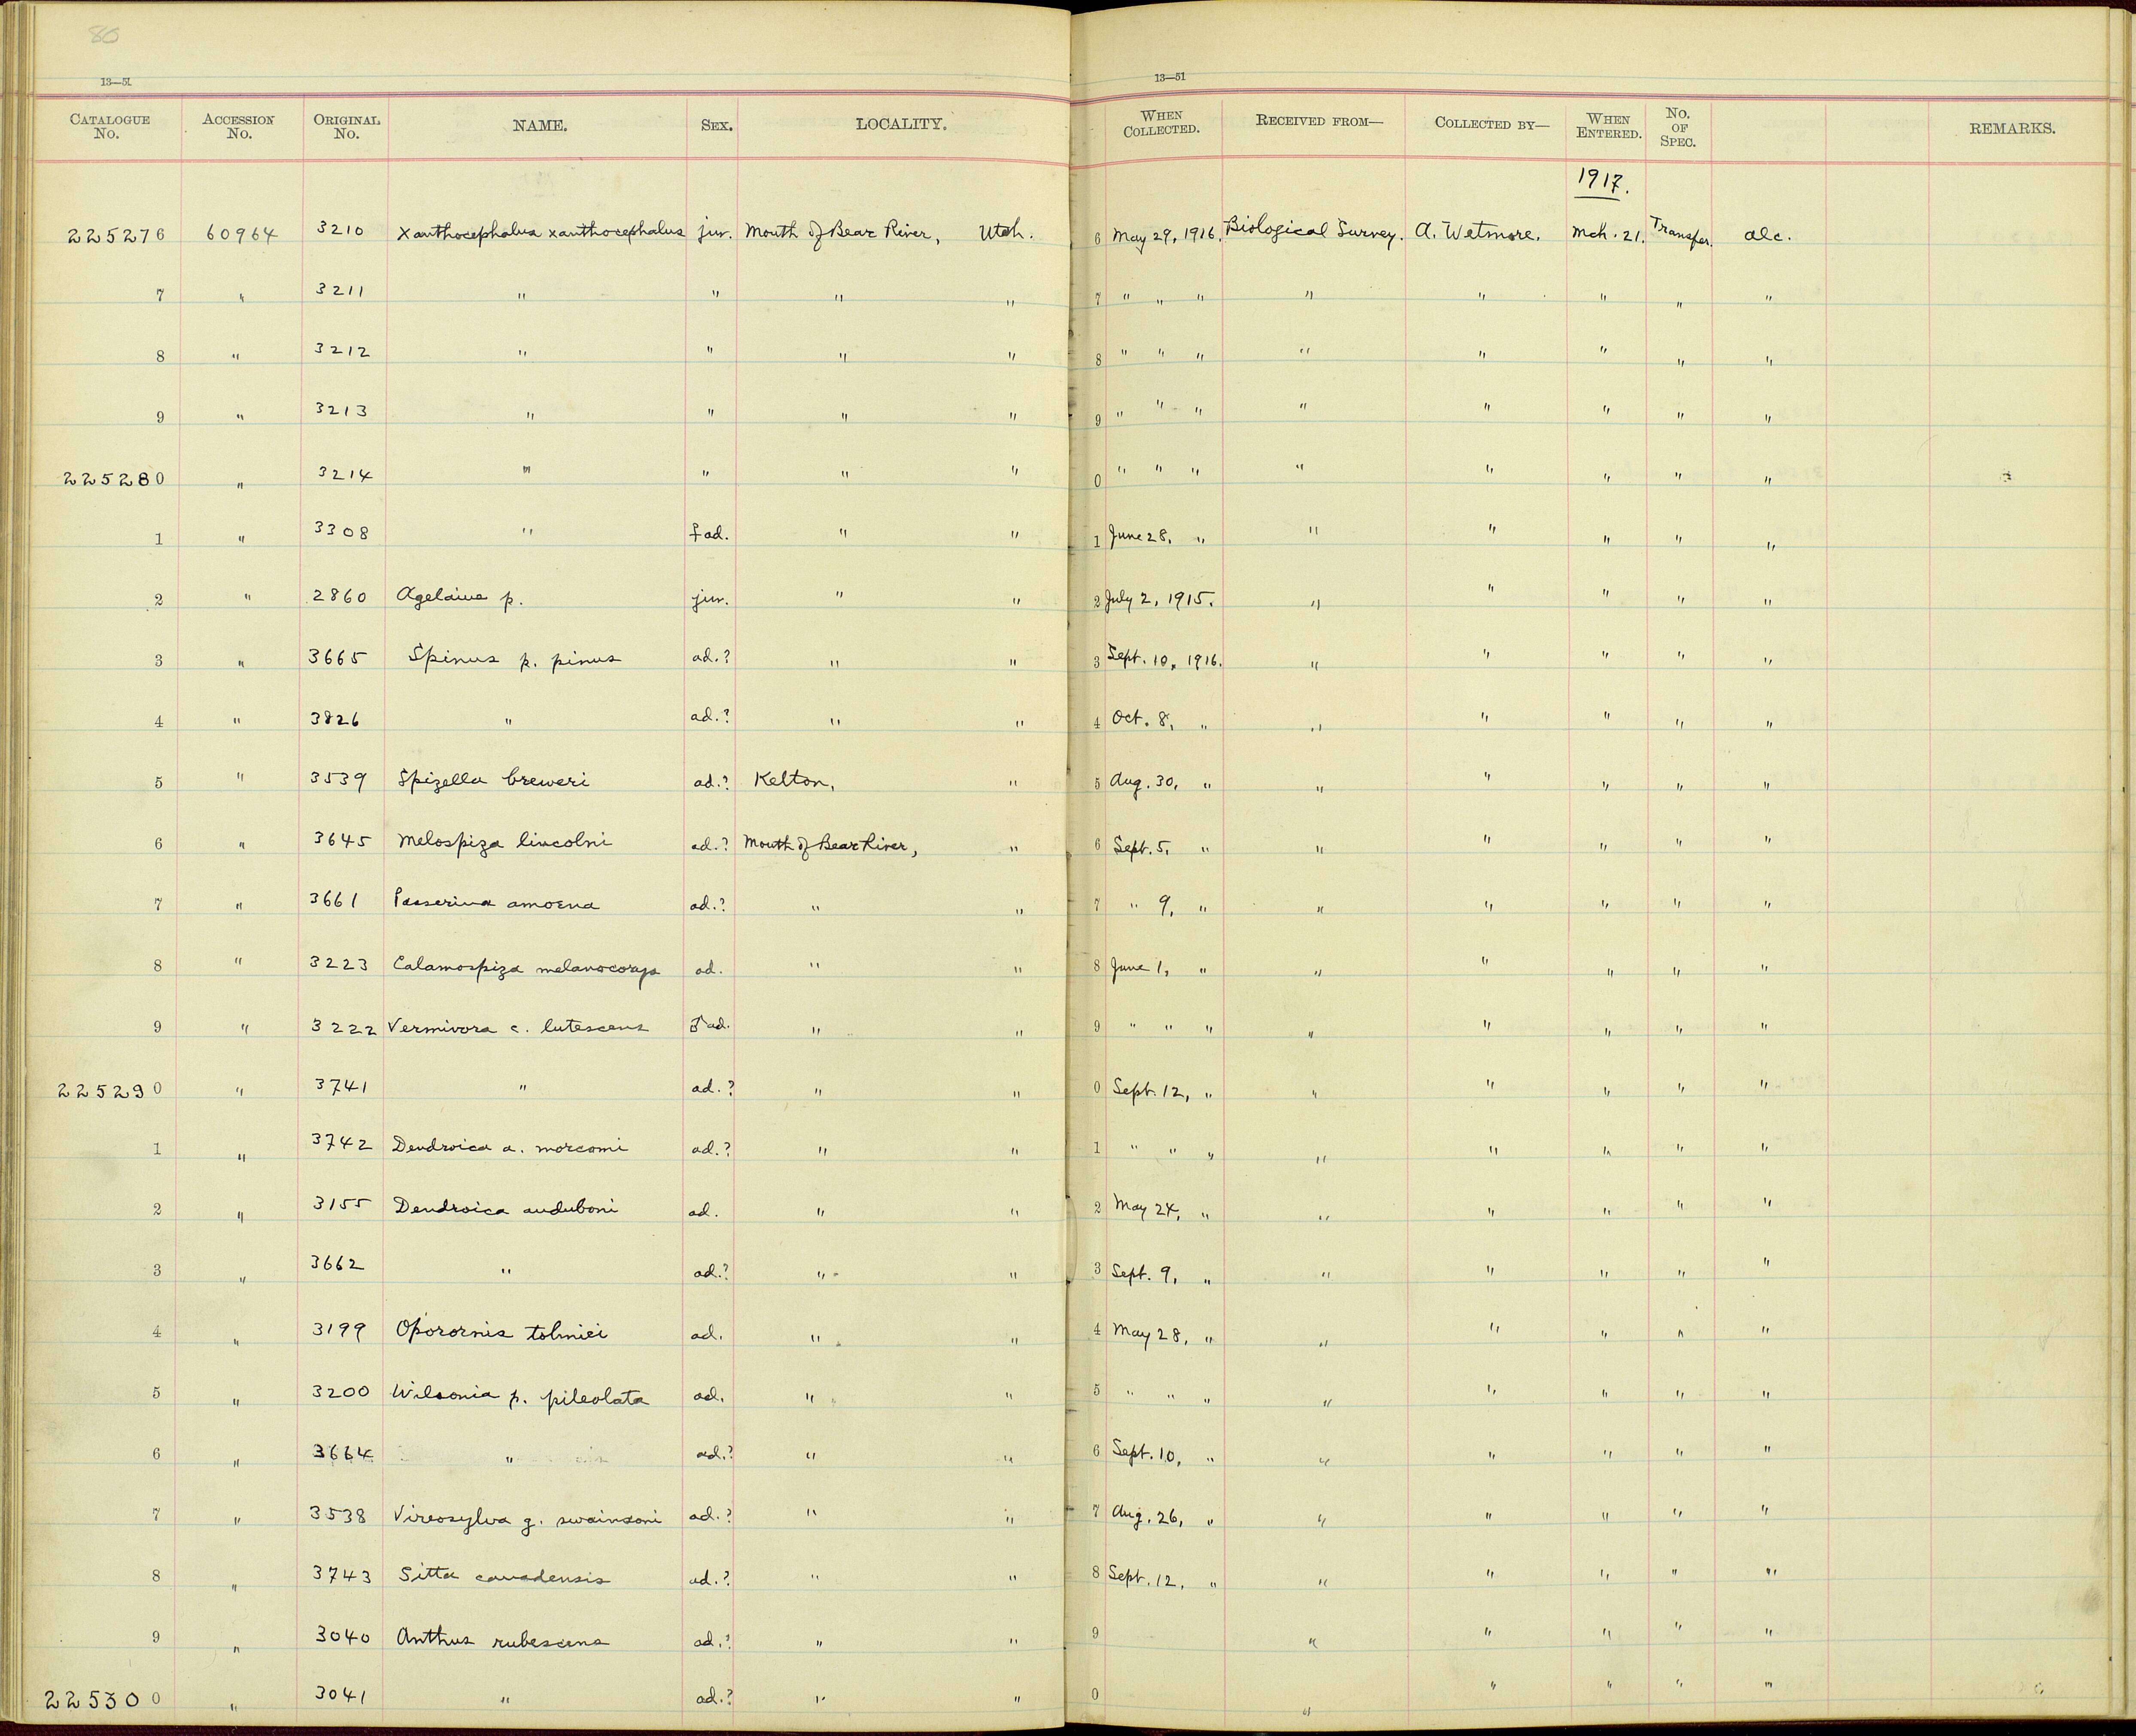 80
13—51 13—51
CATALOGUE No. ACCESSION No. ORIGINAL No. NAME. SEX. LOCALITY. WHEN COLLECTED. RECEIVED FROM— COLLECTED BY— WHEN ENTERED. No. OF SPEC. REMARKS.
1917.
225276 60964 3210 Xanthocephalus xanthocephalus juv. Mouth of Bear River, Utah. 6 May 29, 1916. Biological Survey. A. Wetmore. Mch. 21. Transfer. alc.
7 " 3211 " " " " 7 " " " " " " " "
8 " 3212 " " " " 8 " " " " " " " "
9 " 3213 " " " " 9 " " " " " " " "
225280 " 3214 " " " " 0 " " " " " " " "
1 " 3308 " ♀ ad. " " 1 June 28, " " " " " "
2 " 2860 Agelaius p. juv. " " 2 July 2, 1915. " " " " "
3 " 3665 Spinus p. pinus ad.? " " 3 Sept. 10, 1916. " " " " "
4 " 3826 " ad.? " " 4 Oct. 8, " " " " " "
5 " 3539 Spizella breweri ad.? Kelton, " 5 Aug. 30, " " " " " "
6 " 3645 Melospiza lincolni ad.? Mouth of Bear River, " 6 Sept. 5, " " " " " "
7 " 3661 Passerina amoena ad.? " " 7 " 9, " " " " " "
8 " 3223 Calamospiza melanocorys ad. " " 8 June 1, " " " " " "
9 " 3222 Vermivora c. lutescens ♂ ad. " " 9 " " " " " " " "
225290 " 3741 " ad.? " " 0 Sept. 12, " " " " " "
1 " 3742 Dendroica a. morcomi ad.? " " 1 " " " " " " " "
2 " 3155 Dendroica auduboni ad. " " 2 May 24, " " " " " "
3 " 3662 " ad.? " " 3 Sept. 9, " " " " " "
4 " 3199 Oporornis tolmiei ad. " " 4 May 28, " " " " " "
5 " 3200 Wilsonia p. pileolata ad. " " 5 " " " " " " " "
6 " 3664 " ad.? " " 6 Sept. 10, " " " " " "
7 " 3538 Vireosylva g. swainsoni ad.? " " 7 Aug. 26, " " " " " "
8 " 3743 Sitta canadensis ad.? " " 8 Sept. 12, " " " " " "
9 " 3040 Anthus rubescens ad.? " " 9 " " " " "
225300 " 3041 " ad.? " " 0 " " " " "